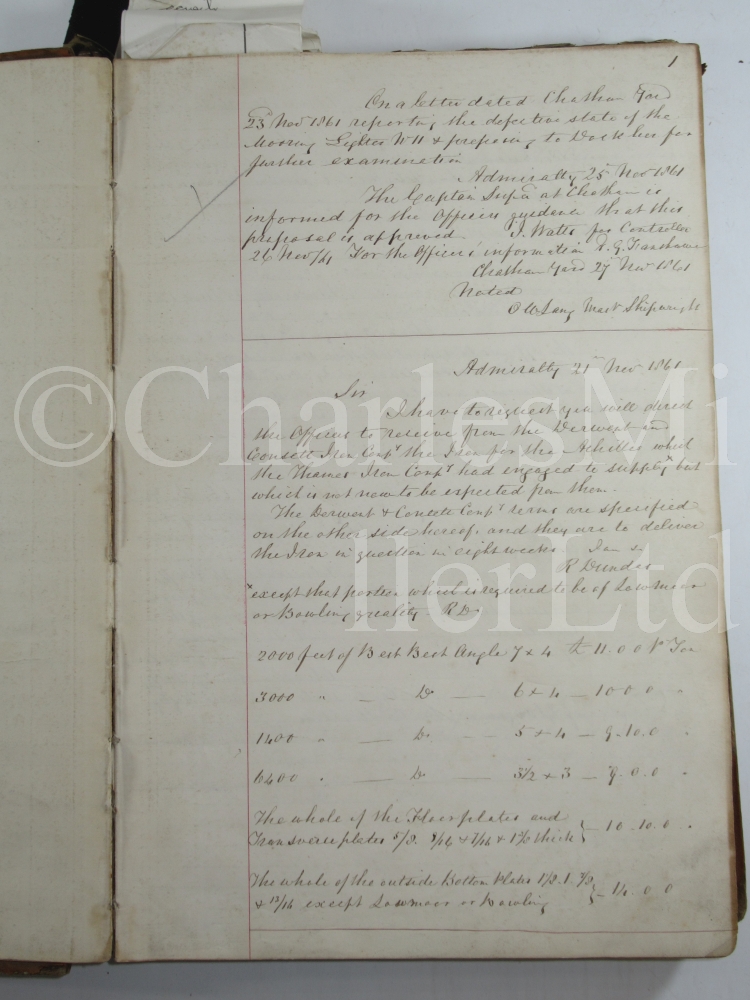 1
On a letter dated Chatham Yard
23 Nov 1861 reporting the defective state of the
Mooring Lighter No 11 & proposing to Dock her for
further examination
Admiralty 25 Nov 1861
The Captain Supt at Chatham is
informed for the Officers guidance that this
proposal is approved J. Watts for Controller
26 Nov/61 For the Officers' information
Chatham Yard 27 Nov 1861
Noted
O W Lang Mastr Shipwright
Admiralty 21 Nov 1861
Sir
I have to request you will direct
the Officers to receive from the Derwent and
Consett Iron Compy the Iron for the Achilles which
the Thames Iron Compy had engaged to supply x but
which is not now to be expected from them.
The Derwent & Consett Compy terms are specified
on the other side hereof, and they are to deliver
the Iron in question in eight weeks. I am &c
R Dundas
x except that portion which is required to be of Lowmoor
or Bowling quality. R D.
2000 feet of Best Best Angle 7 x 4 @ 11.0.0 Pr Ton
3000 " — Do — 6 x 4 — 10 0 0 "
1400 " — Do — 5 x 4 — 9.10.0 "
6400 " — Do — 3 1/2 x 3 — 9.0.0 "
The whole of the Floorplates and
Transverse plates 5/8. 9/16 & 7/16 & thick } — 10.10.0 "
The whole of the outside Bottom Plates 1 1/8. 1. 7/8
& 13/16 except Lowmoor or Bowling } — 14.0.0
©CharlesMi
llerLtd